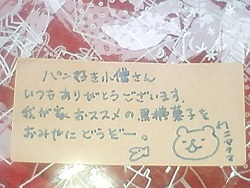 パン好き小僧さん
いつもありがとうございます.
我が家おススメの黒糖菓子を
おみやにどうぞー。